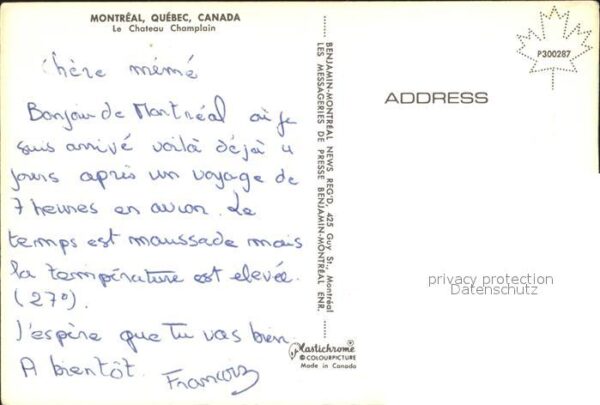 MONTRÉAL, QUÉBEC, CANADA
Le Chateau Champlain
chère mémé
Bonjour de Montréal où je
suis arrivé voilà déjà 4
jours après un voyage de
7 heures en avion. Le
temps est maussade mais
la température est elevée.
(27°).
J'espère que Tu vas bien
A bientôt. Francois
BENJAMIN-MONTRÉAL NEWS REG'D, 425 Guy St., Montréal
LES MESSAGERIES DE PRESSE BENJAMIN-MONTRÉAL ENR.
Plastichrome
® COLOURPICTURE
Made in Canada
P300287
ADDRESS
privacy protection
Datenschutz